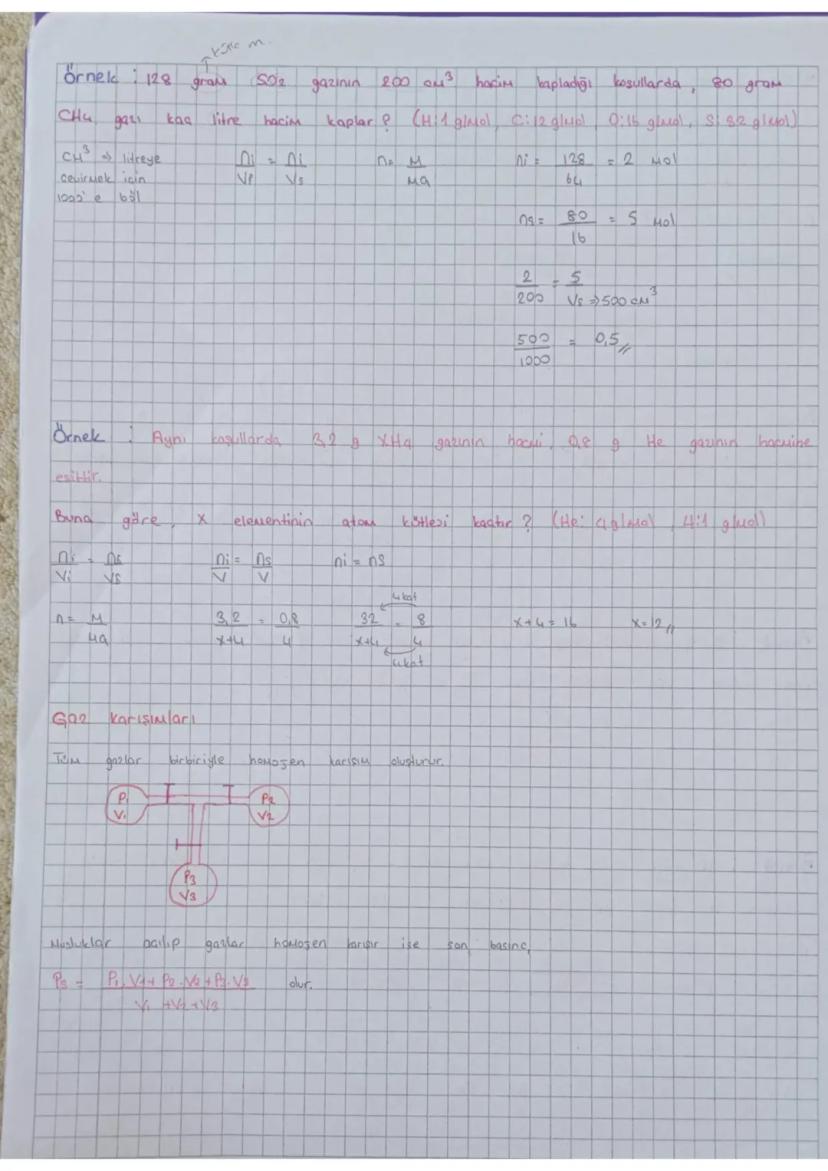 kütle m.
Örnek : 128 gram SO2 gazının 200 cm³ hacim kapladığı koşullarda, 80 gram
CH4 gazı kaç litre hacim kaplar? (H:1 g/mol, C:12 g/mol, O:16 g/mol, S:32 g/mol)
cm³ ⇒ litreye
çevirmek için
1000' e böl
ni/Vi = ni/Vs
n = m/ma
ni = 128/64 = 2 mol
ns = 80/16 = 5 mol
2/200 = 5/Vs ⇒ 500 cm³
500/1000 = 0,5 //
Örnek : Aynı koşullarda 3,2 g XH4 gazının hacmi, 0,8 g He gazının hacmine
eşittir.
Buna göre, X elementinin atom kütlesi kaçtır? (He: 4 g/mol, H:1 g/mol)
ni/Vi = ns/Vs
ni/V = ns/V
ni = ns
n = m/ma
3,2/x+4 = 0,8/4
4 kat
32/x+4 = 8/4
4 kat
x+4 = 16
x = 12 //
Gaz Karışımları
Tüm gazlar birbiriyle homojen karışım oluşturur.
P1 V1
P2 V2
P3 V3
Musluklar açılıp gazlar homojen karışır ise son basınç,
Ps = P1.V1 + P2.V2 + P3.V3 / V1 + V2 + V3 olur.